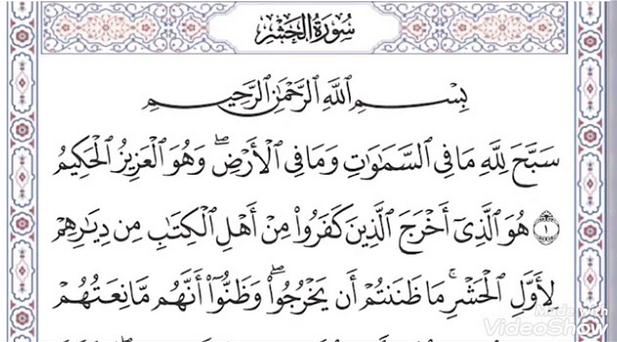 سُورَةُ الحَشْرِ
بِسْمِ ٱللَّهِ ٱلرَّحْمَٰنِ ٱلرَّحِيمِ
سَبَّحَ لِلَّهِ مَا فِي ٱلسَّمَٰوَٰتِ وَمَا فِي ٱلْأَرْضِۖ وَهُوَ ٱلْعَزِيزُ ٱلْحَكِيمُ
١ هُوَ ٱلَّذِيٓ أَخْرَجَ ٱلَّذِينَ كَفَرُوا۟ مِنْ أَهْلِ ٱلْكِتَٰبِ مِن دِيَٰرِهِمْ
لِأَوَّلِ ٱلْحَشْرِۚ مَا ظَنَنتُمْ أَن يَخْرُجُوا۟ۖ وَظَنُّوٓا۟ أَنَّهُم مَّانِعَتُهُمْ
Made With
VideoShow